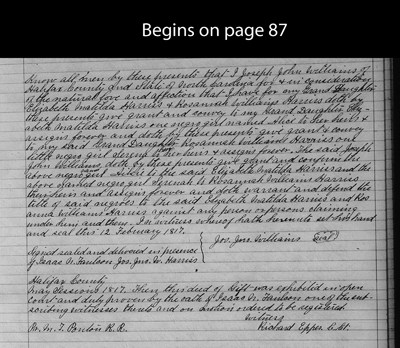 Begins on page 87
Know all men by these presents that I Joseph John Williams of
Halifax County and State of North Carolina for & in consideration
of the natural love and affection that I have for my Grand Daughter
Elizabeth Matilda Harriss & Rosannah Williams Harriss doth by
these presents give grant and convey to my Grand Daughter Eliz-
abeth Matilda Harriss one negro girl named Alice to her heirs &
assigns forever and doth by these presents give grant & convey
to my said Grand Daughter Rosannah Williams Harriss one
little negro girl to her heirs & assigns forever. The said Joseph
John Williams doth by these presents give grant and confirm the
above negro girl Alice to the said Elizabeth Matilda Harriss and the
above named negro girl to Rosannah Williams Harriss
their heirs and assigns forever and doth warrant and defend the
title of said negroes to the said Elizabeth Matilda Harriss and Ros
anna Williams Harriss against any person or persons claiming
under him and them. In witness whereof hath hereunto set his hand
and seal this 12 February 1817.
Jos. Jno. Williams (Seal)
Signed sealed and delivered in presence
of Isaac N. Faulcon Jos. Jno. W. Harriss
Halifax County
May Sessions 1817. Then this deed of Gift was exhibited in open
Court and duly proven by the oath of Isaac N. Faulcon one of the sub-
scribing witnesses thereto and on motion ordered to be registered
Witness
Richard Eppes C. Ct.